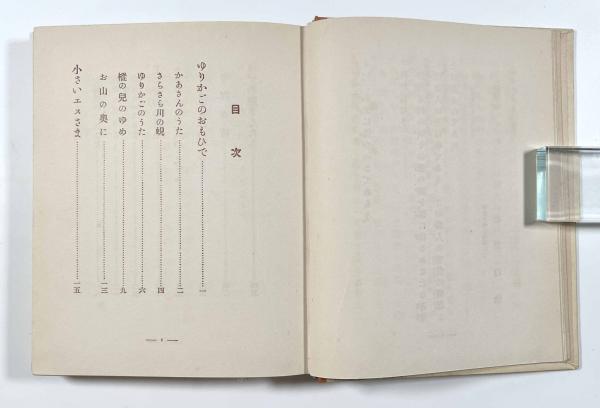 目次
ゆりかごのおもひで……一
かあさんのうた……二
さらさら川の蜆……四
ゆりかごのうた……六
樅の兒のゆめ……九
お山の奥に……一三
小さいエスさま……一五